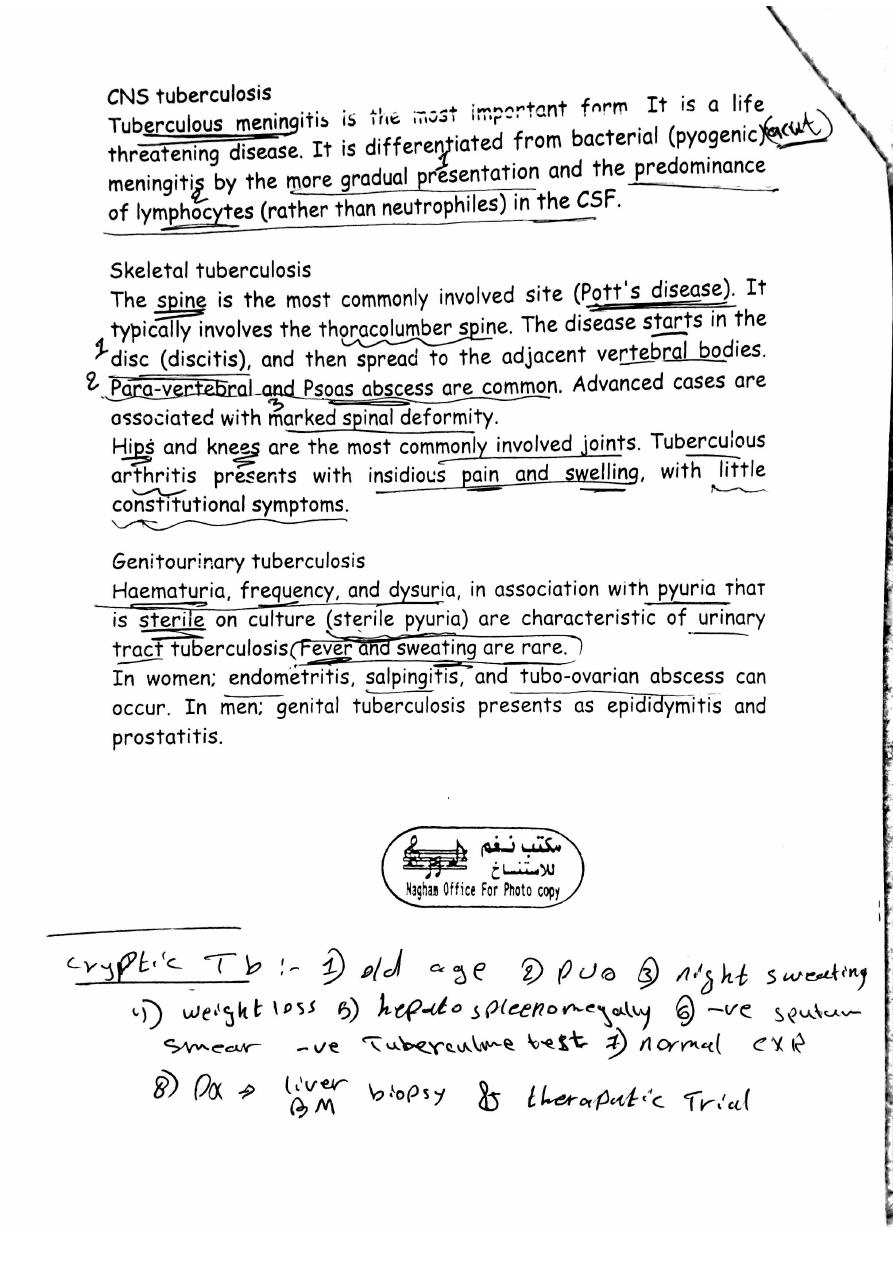 CNS tuberculosis
Tuberculous meningitis is the most important form It is a life
threatening disease. It is differentiated from bacterial (pyogenic)(acut)
meningitis by the more gradual presentation and the predominance
of lymphocytes (rather than neutrophiles) in the CSF.
Skeletal tuberculosis
The spine is the most commonly involved site (Pott's disease). It
typically involves the thoracolumber spine. The disease starts in the
1 disc (discitis), and then spread to the adjacent vertebral bodies.
2 Para-vertebral and Psoas abscess are common. Advanced cases are
3
associated with marked spinal deformity.
Hips and knees are the most commonly involved joints. Tuberculous
arthritis presents with insidious pain and swelling, with little
constitutional symptoms.
Genitourinary tuberculosis
Haematuria, frequency, and dysuria, in association with pyuria that
is sterile on culture (sterile pyuria) are characteristic of urinary
tract tuberculosis (Fever and sweating are rare.)
In women; endometritis, salpingitis, and tubo-ovarian abscess can
occur. In men; genital tuberculosis presents as epididymitis and
prostatitis.
مكتب نغم
للاستنساخ
Nagham Office For Photo copy
cryptic Tb :- 1) old age 2) PUO 3) night sweating
4) weight loss 5) hepatospleenomegally 6) -ve sputum
smear -ve Tuberculine test 7) normal CXR
8) Dx ⇒ liver biopsy & theraputic Trial
BM